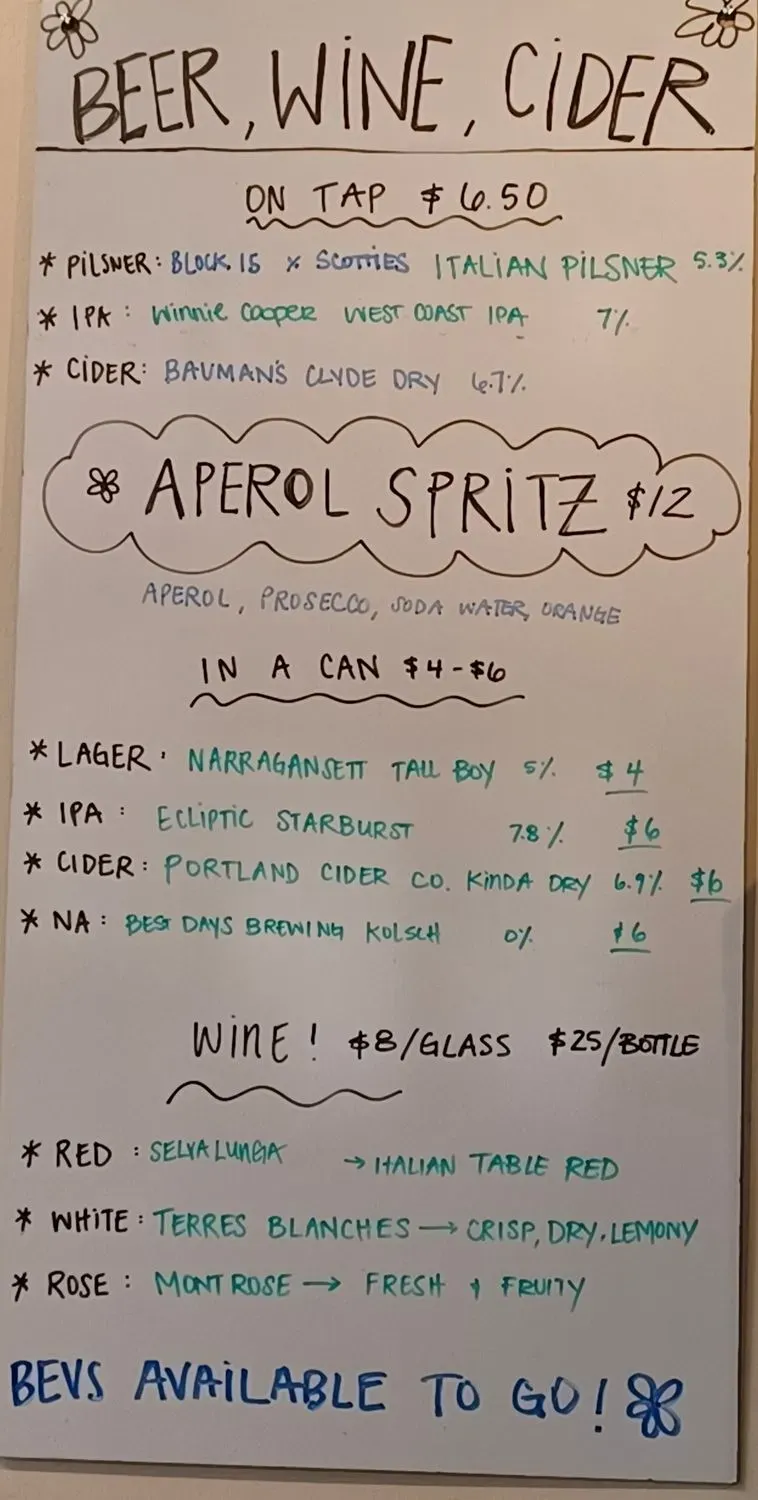 BEER, WINE, CIDER
ON TAP $6.50
* PILSNER: BLOCK 15 x SCOTTIES ITALIAN PILSNER 5.3%
* IPA: Winnie Cooper WEST COAST IPA 7%
* CIDER: BAUMAN'S CLYDE DRY 6.7%
APEROL SPRITZ $12
APEROL, PROSECCO, SODA WATER, ORANGE
IN A CAN $4-$6
* LAGER: NARRAGANSETT TALL BOY 5% $4
* IPA: ECLIPTIC STARBURST 7.8% $6
* CIDER: PORTLAND CIDER CO. KINDA DRY 6.9% $6
* NA: BEST DAYS BREWING KOLSCH 0% $6
WINE! $8/GLASS $25/BOTTLE
* RED: SELVALUNGA → ITALIAN TABLE RED
* WHITE: TERRES BLANCHES → CRISP, DRY, LEMONY
* ROSE: MONT ROSE → FRESH + FRUITY
BEVS AVAILABLE TO GO!